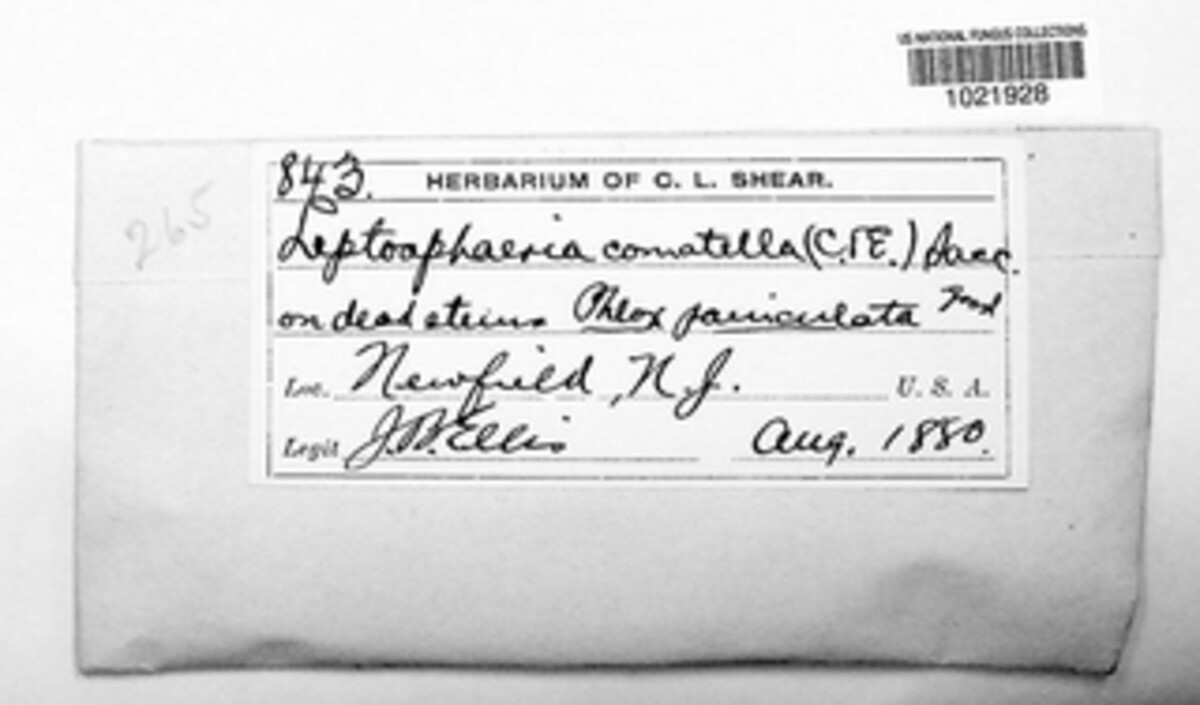 US NATIONAL FUNGUS COLLECTIONS
1021928
265
843.
HERBARIUM OF C. L. SHEAR.
Leptosphaeria comatella (C. & E.) Sacc.
on dead stems Phlox paniculata
Loc. Newfield, N.J. U. S. A.
Legit J.B. Ellis Aug. 1880.